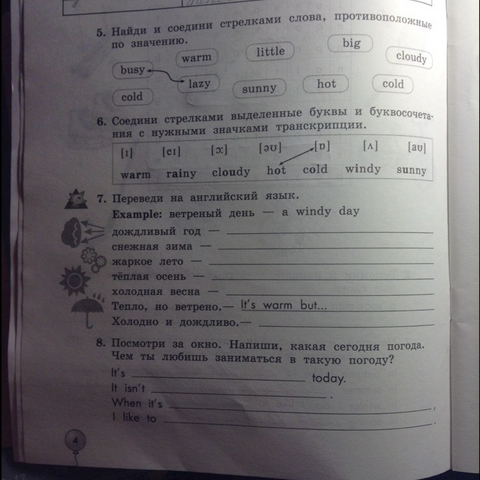 5. Найди и соедини стрелками слова, противоположные
по значению.
busy warm little big cloudy
cold lazy sunny hot cold
6. Соедини стрелками выделенные буквы и буквосочета-
ния с нужными значками транскрипции.
[ɪ] [eɪ] [ɔː] [əʊ] [ɒ] [ʌ] [aʊ]
warm rainy cloudy hot cold windy sunny
7. Переведи на английский язык.
Example: ветреный день — a windy day
дождливый год —
снежная зима —
жаркое лето —
тёплая осень —
холодная весна —
Тепло, но ветрено.— It's warm but...
Холодно и дождливо.—
8. Посмотри за окно. Напиши, какая сегодня погода.
Чем ты любишь заниматься в такую погоду?
It's today.
It isn't .
When it's ,
I like to .
4